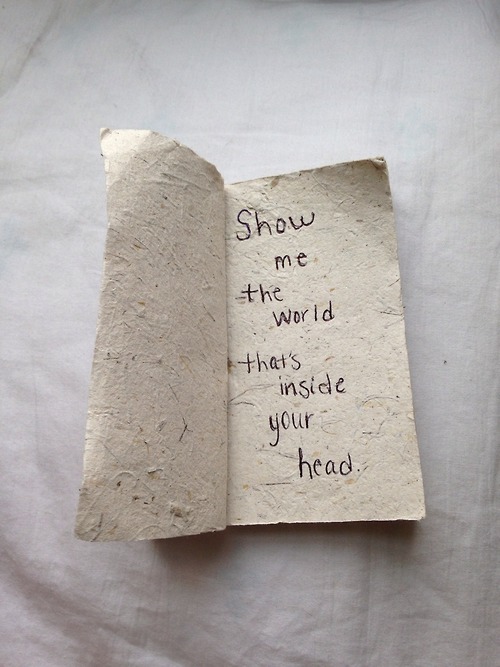 Show
me
the
world
that's
inside
your
head.